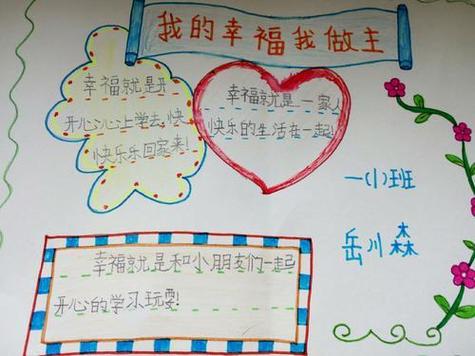 我的幸福我做主
幸福就是开
开心心上学去,快
快乐乐回家来!
幸福就是一家人
快乐的生活在一起!
一(1)班
岳川森
幸福就是和小朋友们一起
开心的学习、玩耍!